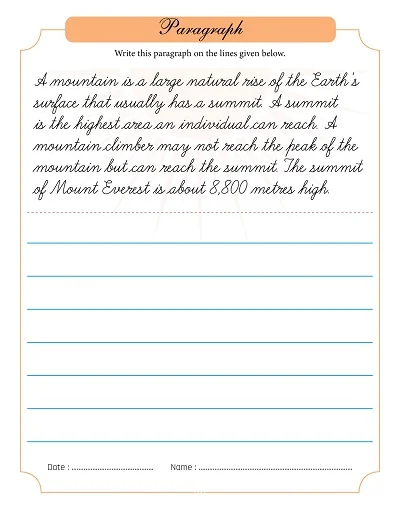 Paragraph
Write this paragraph on the lines given below.
A mountain is a large natural rise of the Earth's
surface that usually has a summit. A summit
is the highest area an individual can reach. A
mountain climber may not reach the peak of the
mountain but can reach the summit. The summit
of Mount Everest is about 8,800 metres high.
Date : ............................ Name : ....................................................